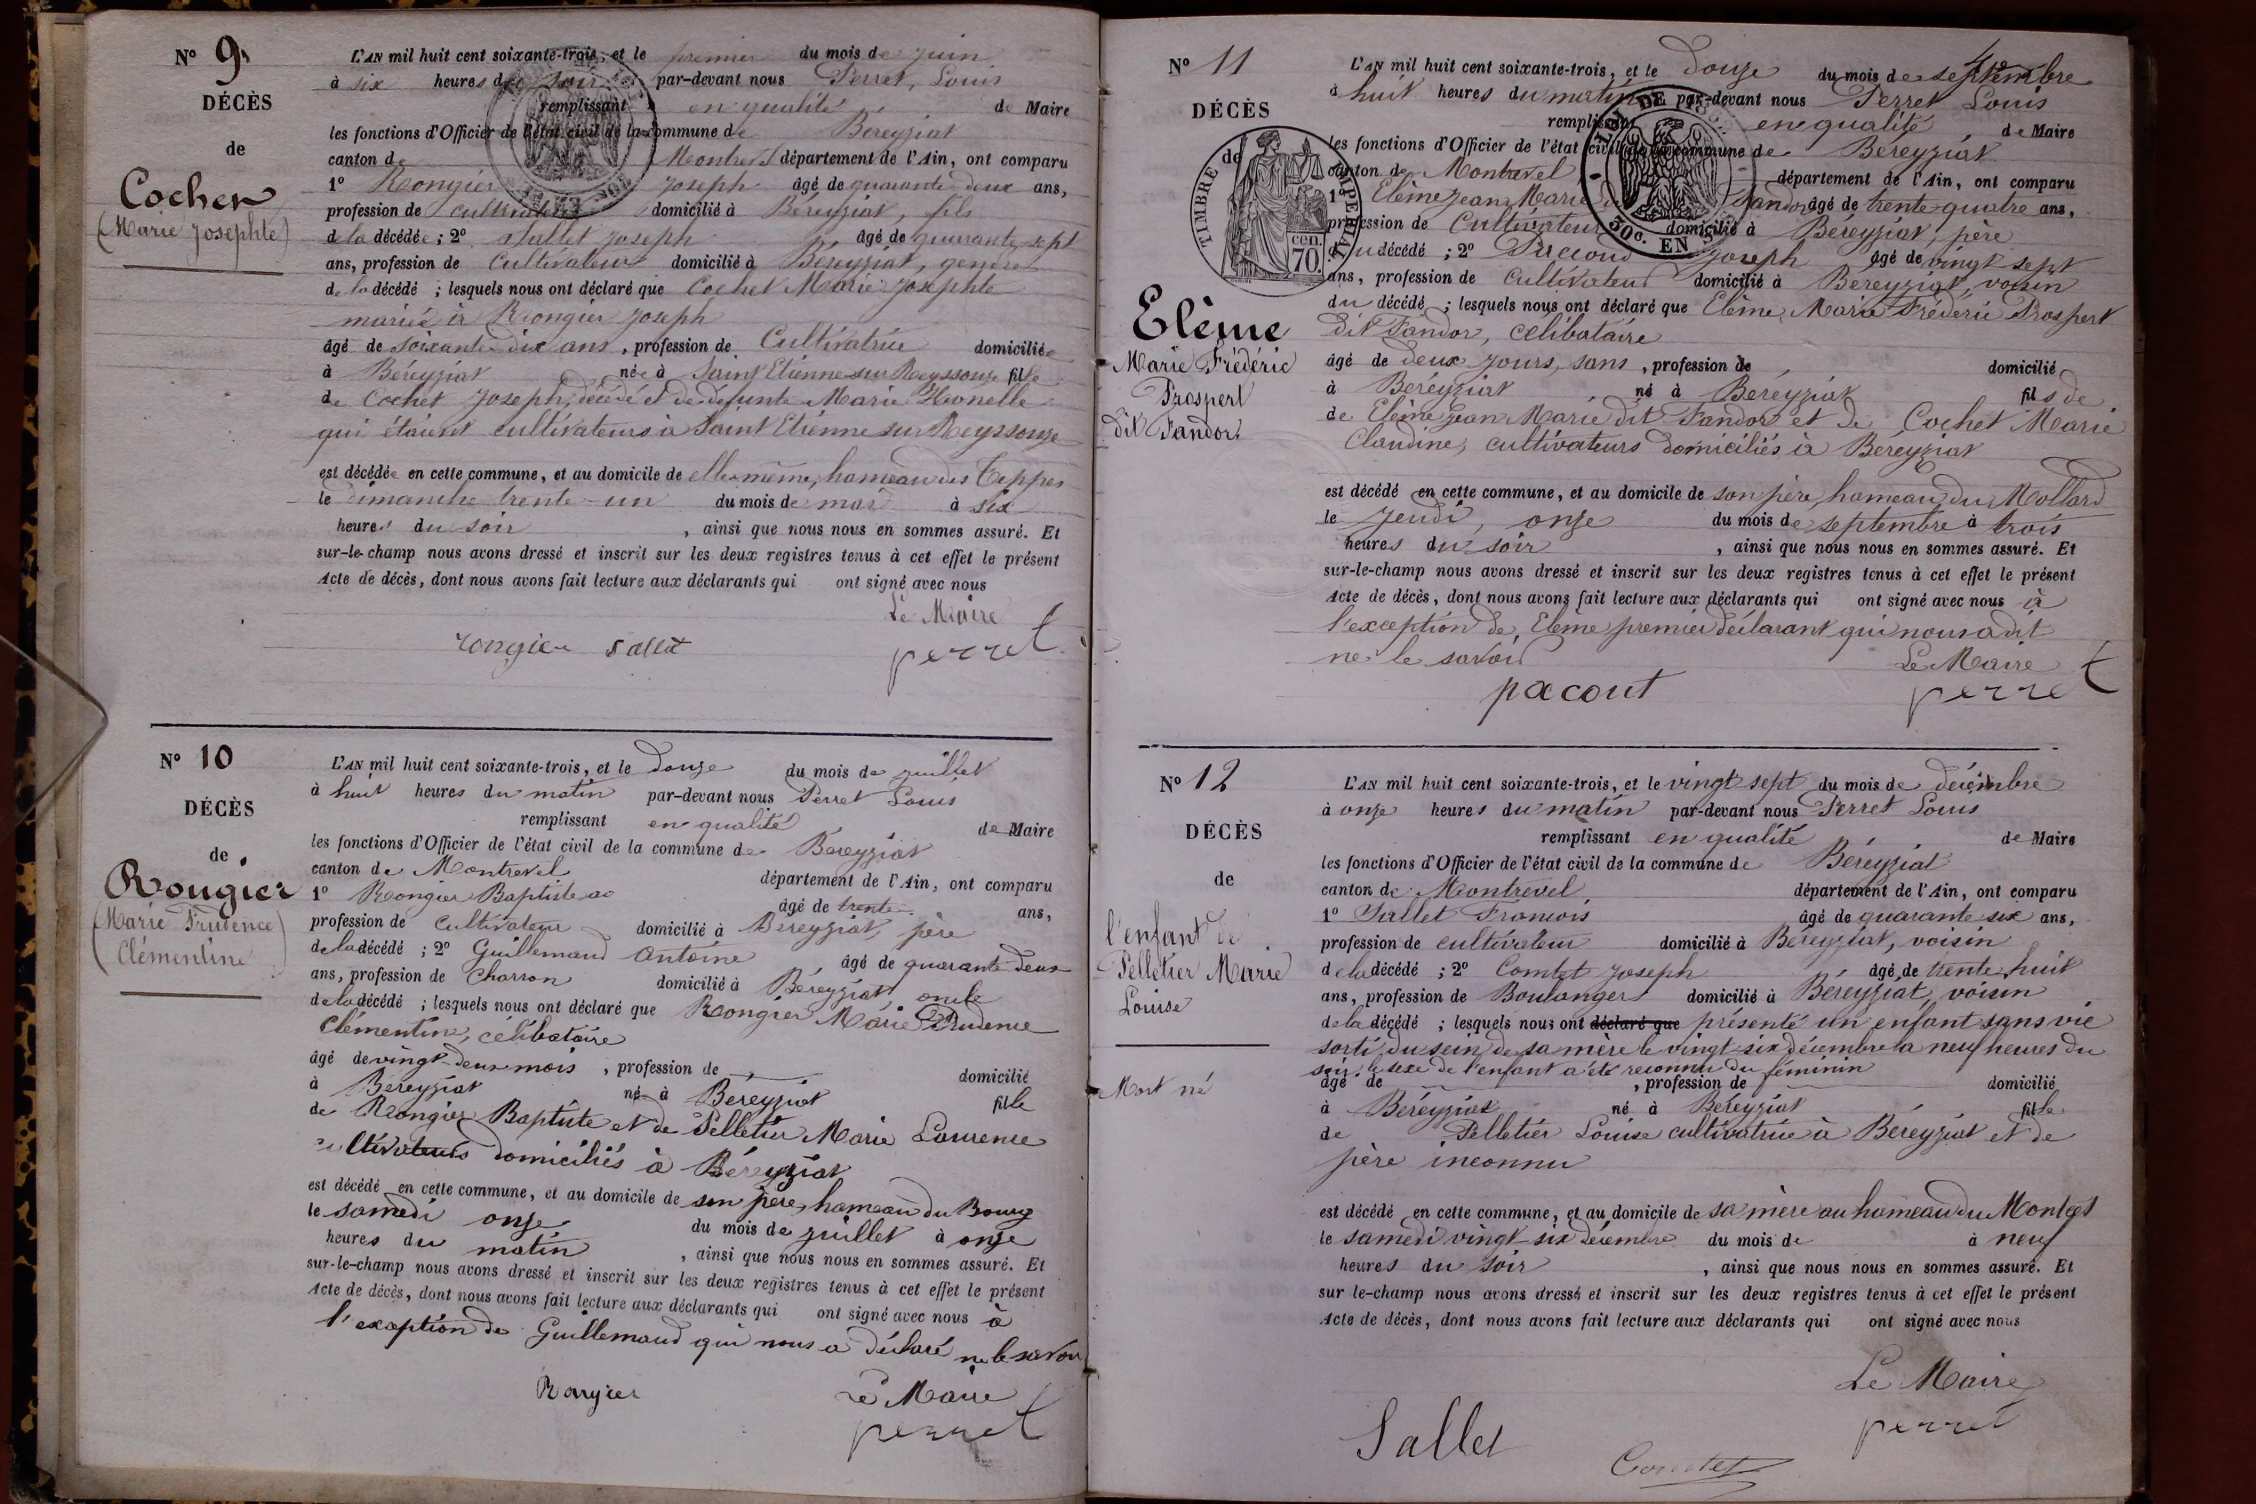 Nº 9
DÉCÈS
de
Cochet
(Marie Josephte)
L'AN mil huit cent soixante-trois, et le premier du mois de juin
à six heures du soir par-devant nous Perret, Louis
remplissant en qualité de Maire
les fonctions d'Officier de l'état civil de la commune de Béreyziat
canton de Montrevel département de l'Ain, ont comparu
1º Rongier Joseph âgé de quarante deux ans,
profession de cultivateur domicilié à Béreyziat, fils
de la décédée ; 2º Sallet Joseph âgé de quarante sept
ans, profession de Cultivateur domicilié à Béreyziat, gendre
de la décédé ; lesquels nous ont déclaré que Cochet Marie Josephte
mariée à Rongier Joseph
âgé de soixante dix ans, profession de Cultivatrice domiciliée
à Béreyziat née à Saint Etienne sur Reyssouze fille
de Cochet Joseph, décédé et de défunte Marie
qui étaient cultivateurs à Saint Etienne sur Reyssouze
est décédée en cette commune, et au domicile de elle même, hameau des Teppes
le dimanche trente-un du mois de mai à six
heures du soir , ainsi que nous nous en sommes assuré. Et
sur-le-champ nous avons dressé et inscrit sur les deux registres tenus à cet effet le présent
Acte de décès, dont nous avons fait lecture aux déclarants qui ont signé avec nous
Le Maire
rongier Sallet perret
Nº 10
DÉCÈS
de
Rongier
(Marie Prudence
Clémentine)
L'AN mil huit cent soixante-trois, et le douze du mois de juillet
à huit heures du matin par-devant nous Perret Louis
remplissant en qualité de Maire
les fonctions d'Officier de l'état civil de la commune de Béreyziat
canton de Montrevel département de l'Ain, ont comparu
1º Rongier Baptiste âgé de trente ans,
profession de cultivateur domicilié à Béreyziat, père
de la décédé ; 2º Guillemaud Antoine âgé de quarante deux
ans, profession de Charron domicilié à Béreyziat oncle
de la décédé ; lesquels nous ont déclaré que Rongier Marie Prudence
Clémentine, célibataire
âgé de vingt-deux mois , profession de domicilié
à Béreyziat né à Béreyziat fille
de Rongier Baptiste et de Pelletier Marie Laurence
cultivateurs domiciliés à Béreyziat
est décédé en cette commune, et au domicile de son père, hameau du Bourg
le samedi onze du mois de juillet à onze
heures du matin , ainsi que nous nous en sommes assuré. Et
sur-le-champ nous avons dressé et inscrit sur les deux registres tenus à cet effet le présent
Acte de décès, dont nous avons fait lecture aux déclarants qui ont signé avec nous à
l'exception de Guillemaud qui nous a déclaré ne le savoir
Rongier Le Maire
perret
Nº 11
DÉCÈS
de
TIMBRE IMPERIAL
70 cen.
30c. EN SUS
Elème
Marie Frédéric
Prospert
dit Fandor
L'AN mil huit cent soixante-trois, et le douze du mois de septembre
à huit heures du matin par-devant nous Perret Louis
remplissant en qualité de Maire
les fonctions d'Officier de l'état civil de la commune de Béreyziat
canton de Montrevel département de l'Ain, ont comparu
1º Elème Jean Marie dit Fandor âgé de trente quatre ans,
profession de Cultivateur domicilié à Béreyziat, père
du décédé ; 2º Joseph âgé de vingt sept
ans, profession de cultivateur domicilié à Béreyziat, voisin
du décédé ; lesquels nous ont déclaré que Elème, Marie Frédéric Prospert
dit Fandor, célibataire
âgé de deux jours, sans , profession de domicilié
à Béréyziat né à Béreyziat fils de
de Elème Jean Marie dit Fandor et de Cochet Marie
Claudine, cultivateurs domiciliés à Béreyziat
est décédé en cette commune, et au domicile de son père, hameau du Mollard
le jeudi, onze du mois de septembre à trois
heures du soir , ainsi que nous nous en sommes assuré. Et
sur-le-champ nous avons dressé et inscrit sur les deux registres tenus à cet effet le présent
Acte de décès, dont nous avons fait lecture aux déclarants qui ont signé avec nous à
l'exception de Elème premier déclarant qui nous a dit
ne le savoir Le Maire
pacout perret
Nº 12
DÉCÈS
de
l'enfant de
Pelletier Marie
Louise
Mort né
L'AN mil huit cent soixante-trois, et le vingt sept du mois de décembre
à onze heures du matin par-devant nous Perret Louis
remplissant en qualité de Maire
les fonctions d'Officier de l'état civil de la commune de Béreyziat
canton de Montrevel département de l'Ain, ont comparu
1º Sallet Francois âgé de quarante six ans,
profession de cultivateur domicilié à Béreyziat, voisin
de la décédé ; 2º Comtet Joseph âgé de trente huit
ans, profession de Boulanger domicilié à Béreyziat, voisin
de la décédé ; lesquels nous ont déclaré que présenté un enfant sans vie
sorti du sein de sa mère le vingt six décembre à neuf heures du
soir. le sexe de l'enfant a été reconnu du féminin
âgé de , profession de domicilié
à Béreyziat né à Béreyziat fille
de Pelletier Louise cultivatrice à Béreyziat et de
père inconnu
est décédé en cette commune, et au domicile de sa mère au hameau du
le samedi vingt-six décembre du mois de à neuf
heures du soir , ainsi que nous nous en sommes assuré. Et
sur le-champ nous avons dressé et inscrit sur les deux registres tenus à cet effet le présent
Acte de décès, dont nous avons fait lecture aux déclarants qui ont signé avec nous
Le Maire
Sallet Comtet perret